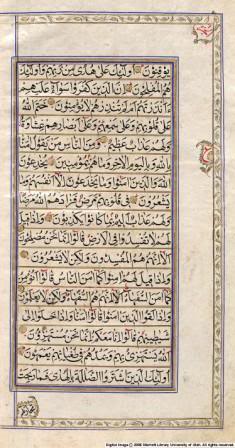 يُوقِنُونَ أُولَٰئِكَ عَلَىٰ هُدًى مِنْ رَبِّهِمْ وَأُولَٰئِكَ
هُمُ الْمُفْلِحُونَ إِنَّ الَّذِينَ كَفَرُوا سَوَاءٌ عَلَيْهِمْ
ءَأَنْذَرْتَهُمْ أَمْ لَمْ تُنْذِرْهُمْ لَا يُؤْمِنُونَ خَتَمَ اللَّهُ
عَلَىٰ قُلُوبِهِمْ وَعَلَىٰ سَمْعِهِمْ وَعَلَىٰ أَبْصَارِهِمْ غِشَاوَةٌ
وَلَهُمْ عَذَابٌ عَظِيمٌ وَمِنَ النَّاسِ مَنْ يَقُولُ آمَنَّا
بِاللَّهِ وَبِالْيَوْمِ الْآخِرِ وَمَا هُمْ بِمُؤْمِنِينَ يُخَادِعُونَ
اللَّهَ وَالَّذِينَ آمَنُوا وَمَا يَخْدَعُونَ إِلَّا أَنْفُسَهُمْ وَمَا
يَشْعُرُونَ فِي قُلُوبِهِمْ مَرَضٌ فَزَادَهُمُ اللَّهُ مَرَضًا
وَلَهُمْ عَذَابٌ أَلِيمٌ بِمَا كَانُوا يَكْذِبُونَ وَإِذَا قِيلَ
لَهُمْ لَا تُفْسِدُوا فِي الْأَرْضِ قَالُوا إِنَّمَا نَحْنُ مُصْلِحُونَ
أَلَا إِنَّهُمْ هُمُ الْمُفْسِدُونَ وَلَٰكِنْ لَا يَشْعُرُونَ
وَإِذَا قِيلَ لَهُمْ آمِنُوا كَمَا آمَنَ النَّاسُ قَالُوا أَنُؤْمِنُ
كَمَا آمَنَ السُّفَهَاءُ أَلَا إِنَّهُمْ هُمُ السُّفَهَاءُ وَلَٰكِنْ لَا يَعْلَمُونَ
وَإِذَا لَقُوا الَّذِينَ آمَنُوا قَالُوا آمَنَّا وَإِذَا خَلَوْا إِلَىٰ
شَيَاطِينِهِمْ قَالُوا إِنَّا مَعَكُمْ إِنَّمَا نَحْنُ مُسْتَهْزِؤُنَ
اللَّهُ يَسْتَهْزِئُ بِهِمْ وَيَمُدُّهُمْ فِي طُغْيَانِهِمْ يَعْمَهُونَ
أُولَٰئِكَ الَّذِينَ اشْتَرَوُا الضَّلَالَةَ بِالْهُدَىٰ فَمَا رَبِحَتْ
Digital Image © 2006 Marriott Library, University of Utah. All rights reserved.